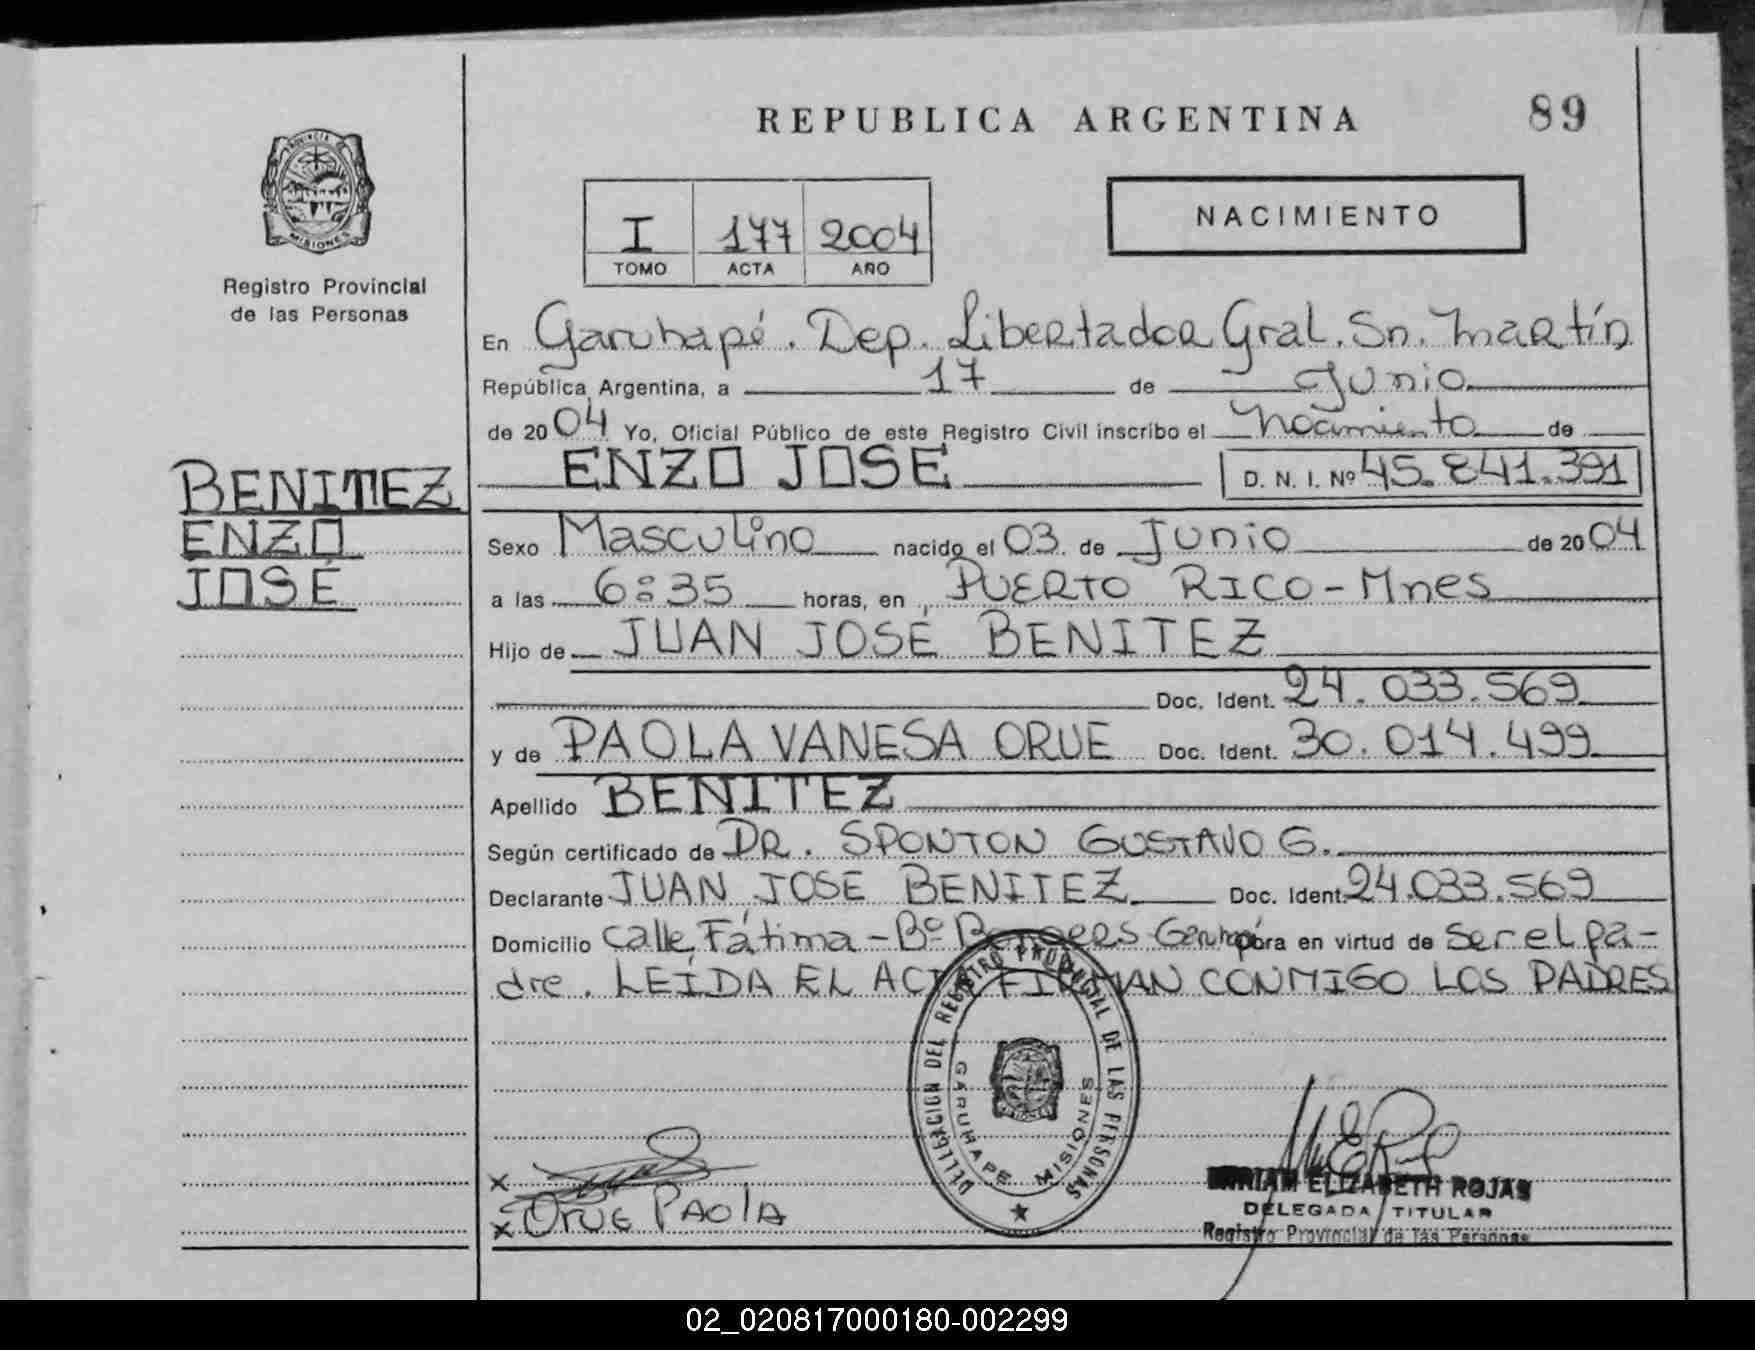 REPUBLICA ARGENTINA
89
PROVINCIA DE
MISIONES
Registro Provincial
de las Personas
I 177 2004
TOMO ACTA AÑO
NACIMIENTO
En Garuhapé. Dep. Libertador Gral. Sn. Martín
República Argentina, a 17 de Junio
de 2004 Yo, Oficial Público de este Registro Civil inscribo el Nacimiento de
ENZO JOSÉ D. N. I. Nº 45.841.391
BENITEZ
ENZO
JOSÉ
Sexo Masculino nacido el 03 de Junio de 2004
a las 6:35 horas, en PUERTO RICO - Mnes
Hijo de JUAN JOSÉ BENITEZ
Doc. Ident. 24.033.569
y de PAOLA VANESA ORUE Doc. Ident. 30.014.499
Apellido BENITEZ
Según certificado de DR. SPONTON GUSTAVO G.
Declarante JUAN JOSE BENITEZ Doc. Ident. 24.033.569
Domicilio calle Fátima - Bº obra en virtud de ser el pa-
dre. LEÍDA EL ACTA FIRMAN CONMIGO LOS PADRES
DELEGACION DEL REGISTRO PROVINCIAL DE LAS PERSONAS
GARUHAPE MISIONES
x
x Orue PAOlA
MIRIAM ELIZABETH ROJAS
DELEGADA TITULAR
Registro Provincial de las Personas
02_020817000180-002299